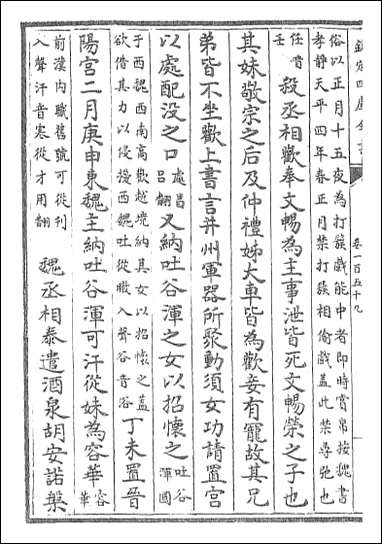 欽定四庫全書
卷一百五十九
俗以正月十五夜為打蔟戲能中者即時賞帛按魏書
孝靜天平四年春正月禁打蔟相偷戲蓋此禁尋弛也
任音
壬
殺丞相歡奉文暢為主事泄皆死文暢榮之子也
其妹敬宗之后及仲禮姊大車皆為歡妾有寵故其兄
弟皆不坐歡上書言并州軍器所聚動須女功請置宮
以處配没之口
處昌
呂翻
又納吐谷渾之女以招懷之
吐谷
渾國
于西魏西南高歡越境納其女以招懷之蓋
欲借其力以侵擾西魏吐從暾入聲谷音浴
丁未置晉
陽宮二月庚申東魏主納吐谷渾可汗從妹為容華
容
華
前漢内職舊號可從刊
入聲汗音寒從才用翻
魏丞相泰遣酒泉胡安諾槃